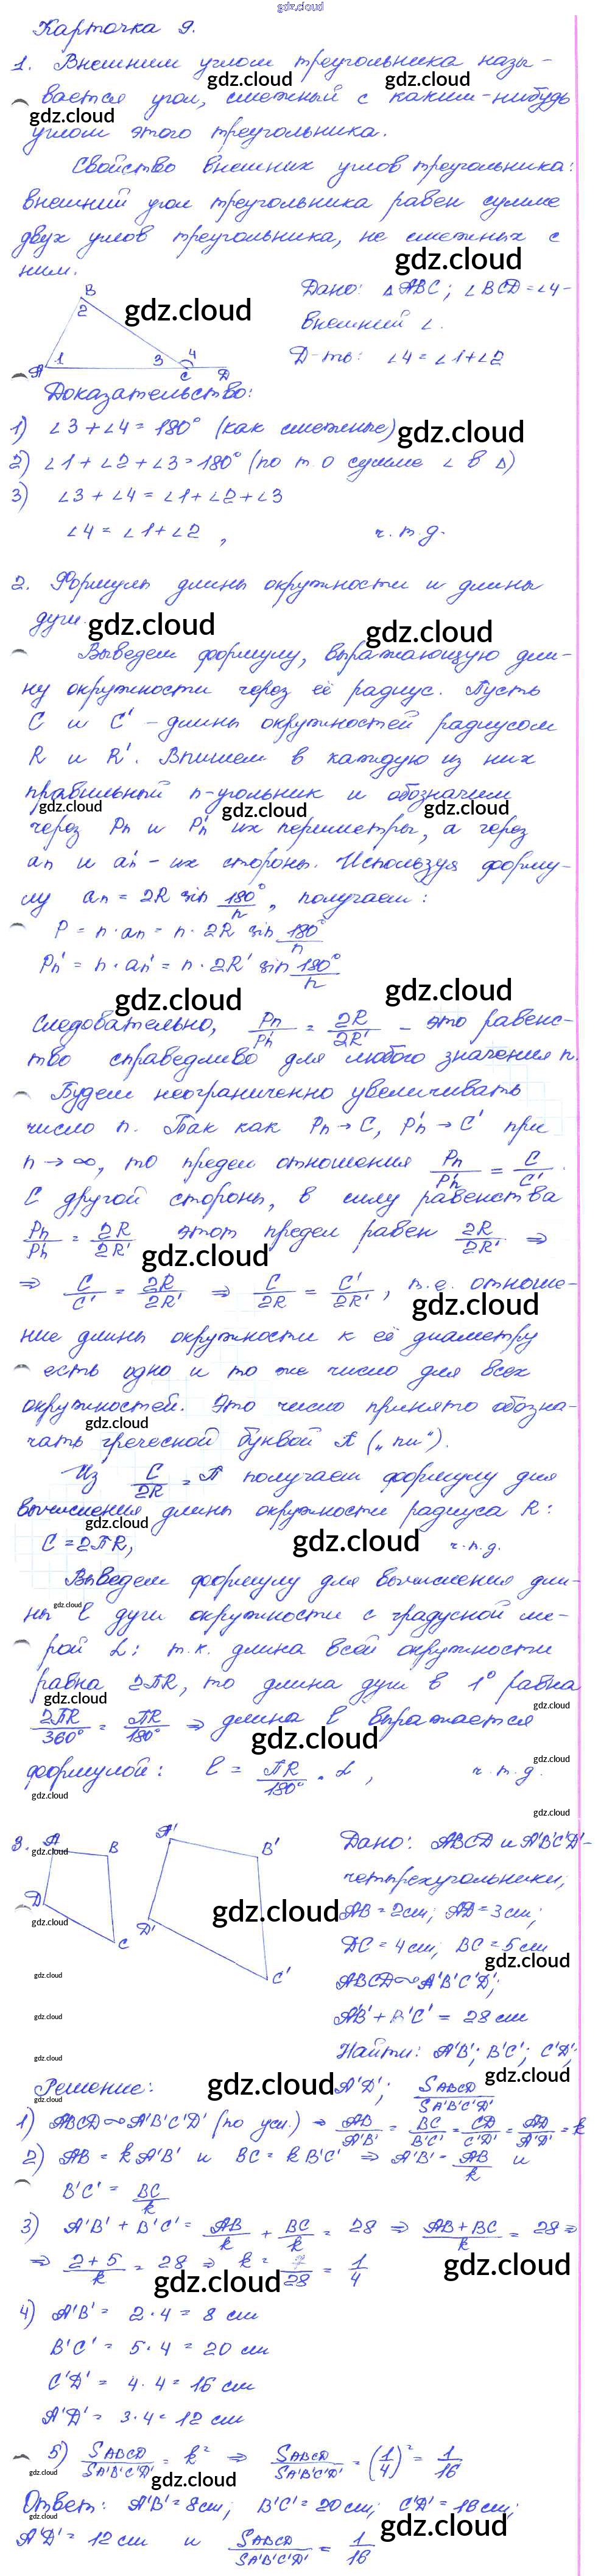 gdz.cloud
Карточка 9.
1. Внешним углом треугольника назы-
gdz.cloud gdz.cloud
вается угол, смежный с каким-нибудь
gdz.cloud
углом этого треугольника.
Свойство внешних углов треугольника:
внешний угол треугольника равен сумме
двух углов треугольника, не смежных с
ним.
gdz.cloud
Дано: △ABC; ∠BCD=∠4-
внешний ∠.
Д-ть: ∠4=∠1+∠2
B
2
gdz.cloud
A 1 3 4 C D
Доказательство:
1) ∠3+∠4=180° (как смежные)
gdz.cloud
2) ∠1+∠2+∠3=180° (по т. о сумме ∠ в △)
3) ∠3+∠4=∠1+∠2+∠3
∠4=∠1+∠2, ч.т.д.
2. Формулы длины окружности и длины
дуги.
gdz.cloud gdz.cloud
Выведем формулу, выражающую дли-
ну окружности через её радиус. Пусть
C и C' - длины окружностей радиусом
R и R'. Впишем в каждую из них
правильный n-угольник и обозначим
gdz.cloud gdz.cloud gdz.cloud
через Pn и Pn' их периметры, а через
an и an' - их стороны. Используя форму-
лу an = 2R sin 180°/n, получаем:
P = n·an = n·2R sin 180°/n
Pn' = n·an' = n·2R' sin 180°/n
gdz.cloud gdz.cloud
Следовательно, Pn/Pn' = 2R/2R' - это равенс-
тво справедливо для любого значения n.
Будем неограниченно увеличивать
число n. Так как Pn→C, Pn'→C' при
n→∞, то предел отношения Pn/Pn' = C/C'.
С другой стороны, в силу равенства
Pn/Pn = 2R/2R' этот предел равен 2R/2R' ⇒
gdz.cloud
⇒ C/C' = 2R/2R' ⇒ C/2R = C'/2R', т.е. отноше-
gdz.cloud
ние длины окружности к её диаметру
есть одно и то же число для всех
окружностей. Это число принято обозна-
gdz.cloud
чать греческой буквой π („пи“).
Из C/2R = π получаем формулу для
вычисления длины окружности радиуса R:
gdz.cloud
C=2πR, ч.т.д.
gdz.cloud
Выведем формулу для вычисления дли-
ны l дуги окружности с градусной ме-
gdz.cloud
рой α: т.к. длина всей окружности
равна 2πR, то длина дуги в 1° равна
gdz.cloud gdz.cloud
2πR/360° = πR/180° ⇒ длина l выражается
gdz.cloud
формулой: l = πR/180° · α, ч.т.д.
gdz.cloud
gdz.cloud
gdz.cloud
3. A B D C A' B' D' C'
gdz.cloud
gdz.cloud
gdz.cloud
Дано: ABCD и A'B'C'D'-
четырехугольники;
AB=2см; AD=3см;
DC=4см; BC=5см
gdz.cloud
gdz.cloud
ABCD∾A'B'C'D';
A'B'+B'C' = 28 см
gdz.cloud
Найти: A'B'; B'C'; C'D';
gdz.cloud
A'D'; SABCD/SA'B'C'D'
gdz.cloud gdz.cloud
Решение:
gdz.cloud
1) ABCD∾A'B'C'D' (по усл.) ⇒ AB/A'B' = BC/B'C' = CD/C'D' = AD/A'D' = k
2) AB = kA'B' и BC = kB'C' ⇒ A'B' = AB/k и
B'C' = BC/k
3) A'B'+B'C' = AB/k + BC/k = 28 ⇒ AB+BC/k = 28 ⇒
⇒ 2+5/k = 28 ⇒ k = 7/28 = 1/4
gdz.cloud gdz.cloud
4) A'B' = 2·4 = 8 см
B'C' = 5·4 = 20 см
C'D' = 4·4 = 16 см
A'D' = 3·4 = 12 см
5) SABCD/SA'B'C'D' = k² ⇒ SABCD/SA'B'C'D' = (1/4)² = 1/16
gdz.cloud gdz.cloud
Ответ: A'B'=8см; B'C'=20см; C'D'=16см;
gdz.cloud gdz.cloud
A'D'=12см и SABCD/SA'B'C'D' = 1/16